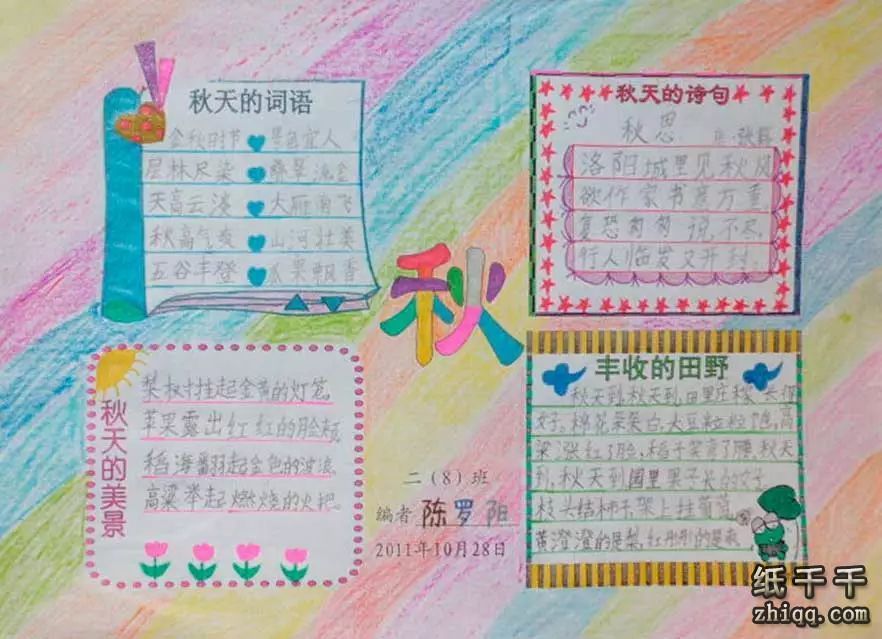 秋天的词语
金秋时节 景色宜人
层林尽染 叠翠流金
天高云淡 大雁南飞
秋高气爽 山河壮美
五谷丰登 瓜果飘香
秋天的诗句
秋思 张籍
洛阳城里见秋风
欲作家书意万重
复恐匆匆说不尽
行人临发又开封
秋
秋天的美景
梨树挂起金黄的灯笼,
苹果露出红红的脸颊,
稻海翻起金色的波浪,
高粱举起燃烧的火把。
二(8)班
编者 陈罗阳
2011年10月28日
丰收的田野
秋天到,秋天到,田里庄稼长得
好。棉花朵朵白,大豆粒粒饱,高
粱涨红了脸,稻子笑弯了腰,秋天
到,秋天到园里果子长的好
枝头结柿子,架上挂葡萄,
黄澄澄的是梨,红彤彤的是枣
纸千千
zhiqq.com